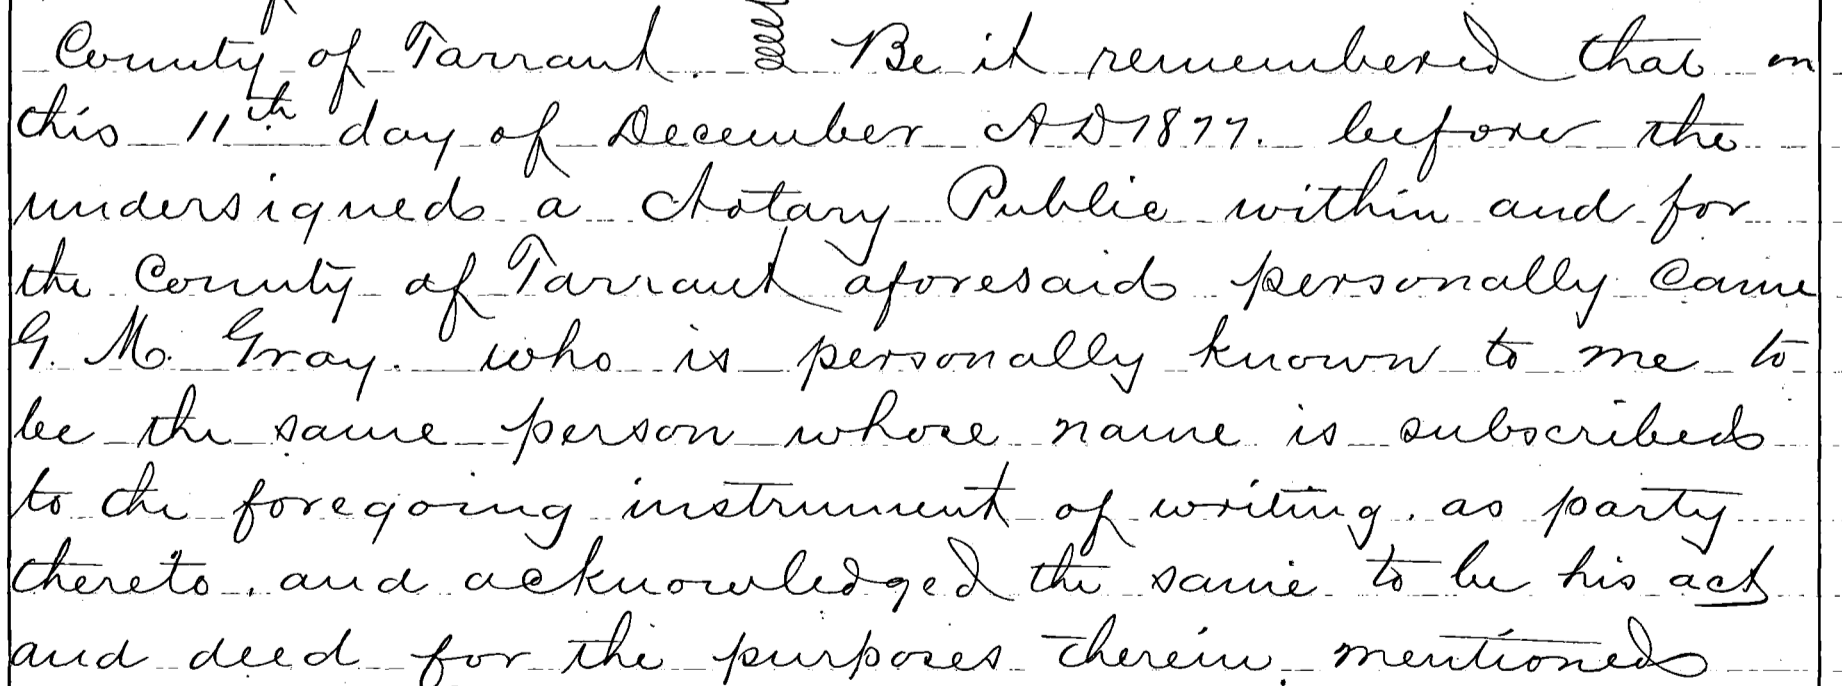 County of Tarrant. Be it remembered that on
this 11th day of December AD 1877. before the
undersigned a Notary Public within and for
the County of Tarrant aforesaid personally came
G. M. Gray. who is personally known to me to
be the same person whose name is subscribed
to the foregoing instrument of writing. as party
thereto. and acknowledged the same to be his act
and deed for the purposes therein mentioned